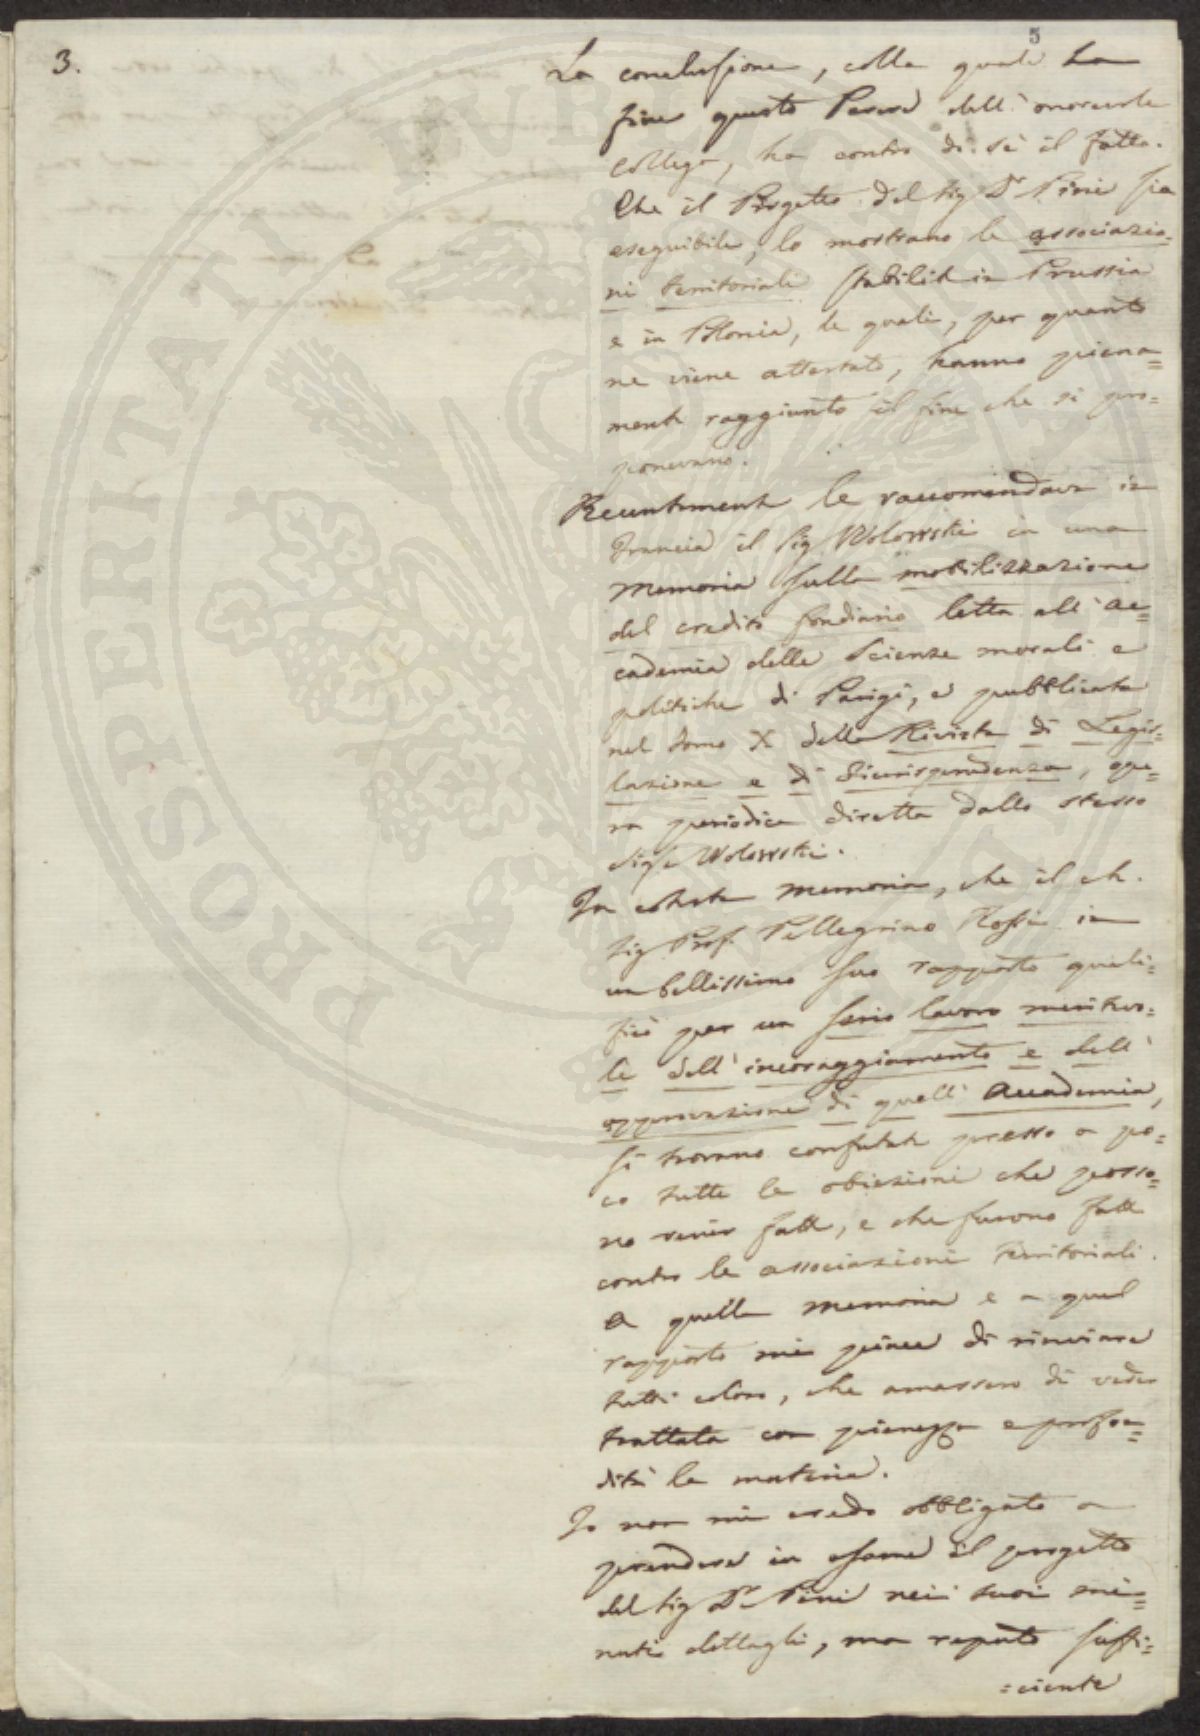 5
3.
La conclusione, colla quale ha
fine questo Parere dell'onorevole
collega, ha contro di sè il fatto.
Che il Progetto del Sig Dr Pini sia
eseguibile, lo mostrano le associazio-
ni territoriali stabilite in Prussia
e in Polonia, le quali, per quanto
ne viene attestato, hanno piena=
mente raggiunto il fine che si pro=
ponevano.
Recentemente le raccomandava in
Francia il Sig Wolowski in una
Memoria sulla mobilizzazione
del credito fondiario letta all'Ac=
cademia delle Scienze morali e
politiche di Parigi, e pubblicata
nel tomo X della Rivista di Legis-
lazione e di Giurisprudenza, ope=
ra periodica diretta dallo stesso
Sigr Wolowski.
In cotesta memoria, che il ch.
Sig Prof. Pellegrino Rossi in
un bellissimo suo rapporto quali=
ficò per un serio lavoro meritevo=
le dell'incoraggiamento e dell'
approvazione di quell'Accademia,
si trovano confutate presso a po=
co tutte le obiezioni che posso=
no venir fatte, e che furono fatte
contro le associazioni territoriali.
A quella memoria e a quel
rapporto mi piace di rinviare
tutti coloro, che amassero di veder
trattata con pienezza e profon=
dità la materia.
Io non mi credo obbligato a
prendere in esame il progetto
del Sig Dr Pini nei suoi mi=
nuti dettagli, ma reputo suffi=
=ciente
PROSPERITATI PUBLICAE